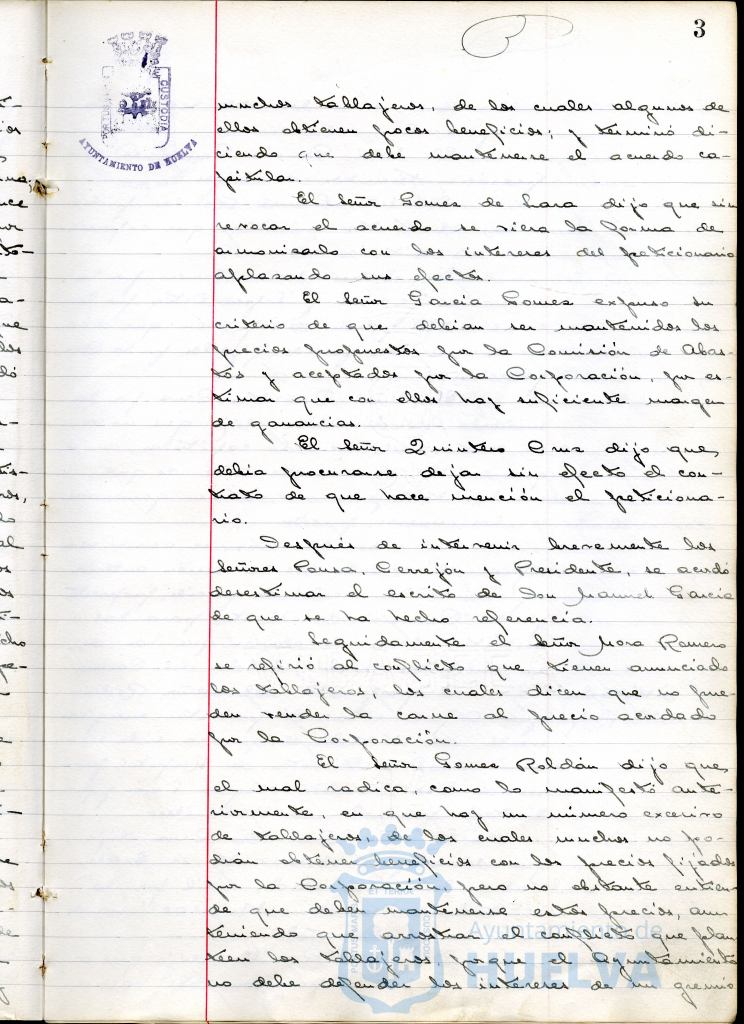 3
CUSTODIA
AYUNTAMIENTO DE HUELVA
muchos tablajeros, de los cuales algunos de
ellos obtienen pocos beneficios; y terminó di-
ciendo que debe mantenerse el acuerdo ca-
pitular.
El Señor Gomez de Lara dijo que sin
revocar el acuerdo se viera la forma de
armonizarlo con los intereses del peticionario
aplazando sus efectos.
El Señor García Gomez expuso su
criterio de que debian ser mantenidos los
precios propuestos por la Comisión de Abas-
tos y aceptados por la Corporación, por es-
timar que con ellos hay suficiente margen
de ganancias.
El Señor Quintero Cruz dijo que,
debia procurarse dejar sin efecto el con-
trato de que hace mención el peticiona-
rio.
Después de intervenir brevemente los
Señores Pousa, Cerrejón y Presidente, se acordó
desestimar el escrito de Don Manuel García
de que se ha hecho referencia.
Seguidamente el Señor Mora Romero
se refirió al conflicto que tienen anunciado
los tablajeros, los cuales dicen que no pue-
den vender la carne al precio acordado
por la Corporación.
El Señor Gomez Roldán dijo que,
el mal radica, como lo manifestó ante-
riormente, en que hay un número excesivo
de tablajeros, de los cuales muchos no po-
drán obtener beneficios con los precios fijados
por la Corporación, pero no obstante entien-
de que deben mantenerse estos precios, aun
teniendo que arrostrar el conflicto que plan
teen los tablajeros, porque el Ayuntamiento
no debe defender los intereses de un gremio
Ayuntamiento de
HUELVA